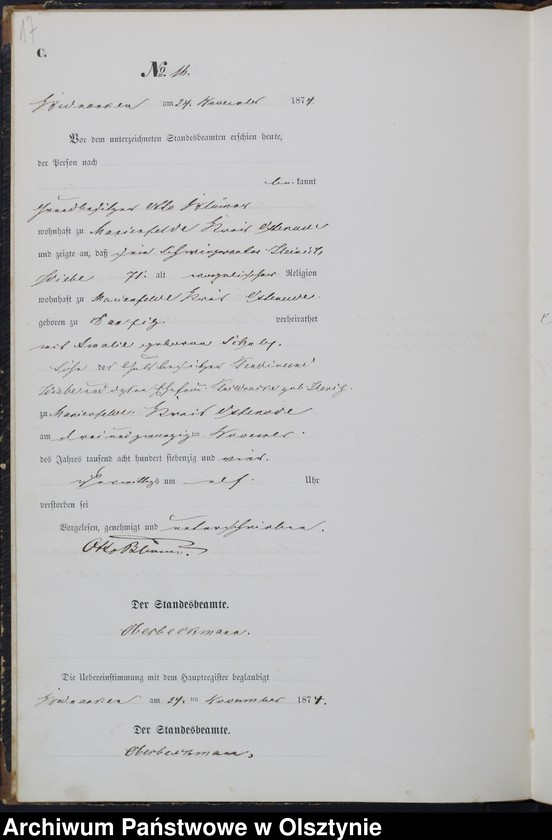 17
C.
No. 16.
am 24. November 1874.
Vor dem unterzeichneten Standesbeamten erschien heute,
der Person nach
be kannt
Otto
wohnhaft zu Marienfelde Kreis Osterode
und zeigte an, daß sein Schwiegervater
Wiebe 71. alt evangelischer Religion
wohnhaft zu Marienfelde Kreis Osterode
geboren zu Danzig verheirathet
mit Amalie geborene
Sohn des Gutsbesitzer
Wiebe und dessen Ehefrau geb.
zu Marienfelde Kreis Osterode
am drei und zwanzigsten November
des Jahres tausend acht hundert siebenzig und vier.
Vormittags um elf Uhr
verstorben sei
Vorgelesen, genehmigt und unterschrieben.
Otto
Der Standesbeamte.
Oberbeckmann.
Die Uebereinstimmung mit dem Hauptregister beglaubigt
am 24. ten November 1874.
Der Standesbeamte.
Oberbeckmann.
Archiwum Państwowe w Olsztynie